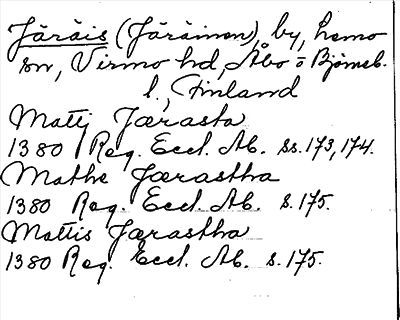 Järäis (Järäinen), by, Lemo
sn, Virmo hd, Åbo = Björneb.
l., Finland
Matti Jærasta
1380 Reg. Eccl. Ab. ss. 173, 174.
Mathe Jærastha
1380 Reg. Eccl. Ab. s. 175.
Mattis Jærastha
1380 Reg. Eccl. Ab. s. 175.